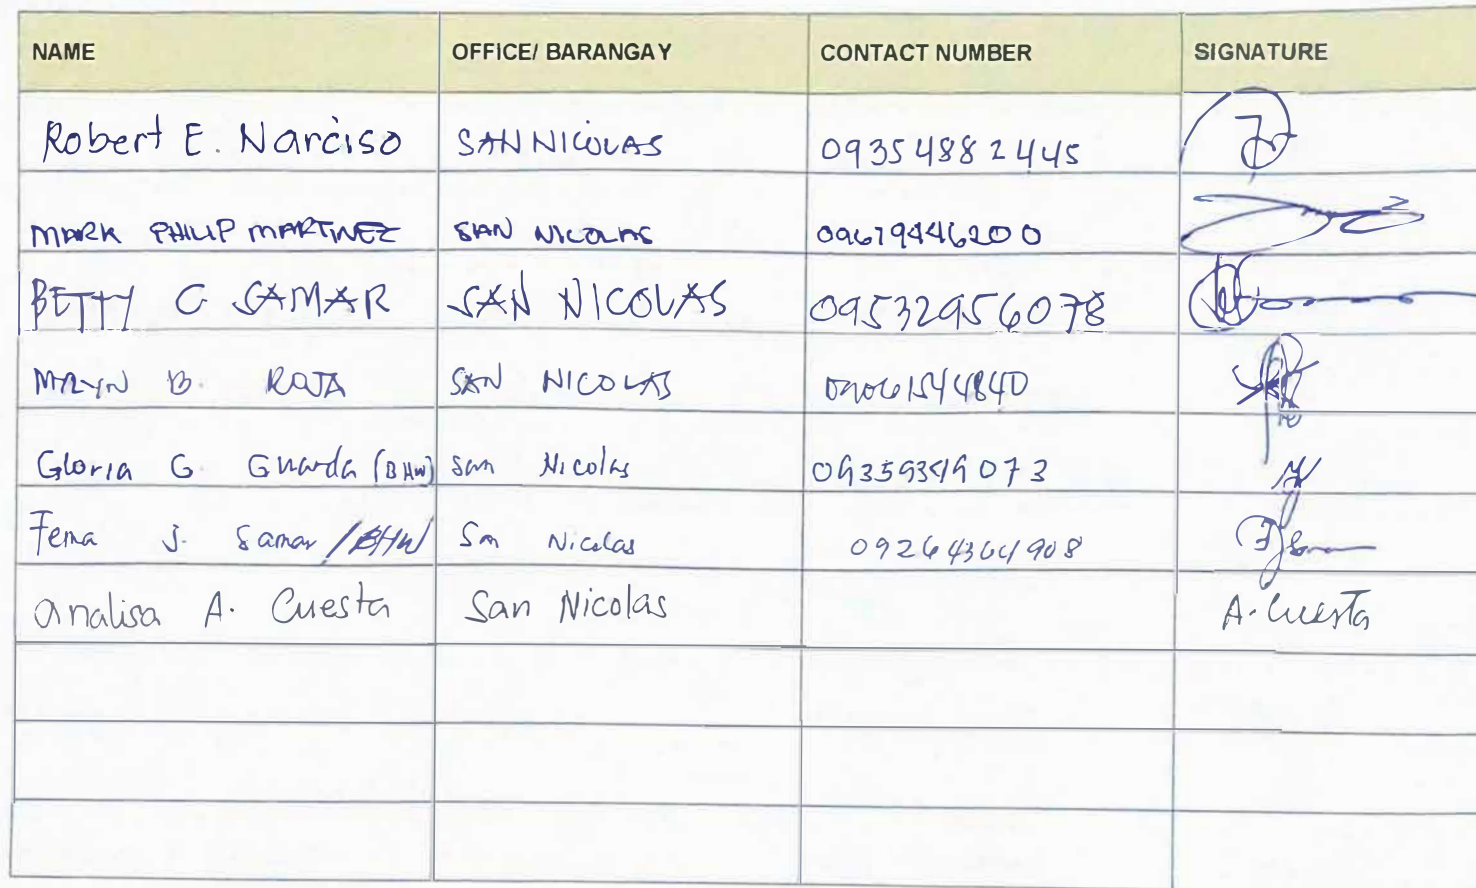 NAME OFFICE/ BARANGAY CONTACT NUMBER SIGNATURE
Robert E. Narciso SAN NICOLAS 09354882445
MARK PHILIP MARTINEZ SAN NICOLAS 09679446200
BETTY C SAMAR SAN NICOLAS 09532956078
B. ROJA SAN NICOLAS
Gloria G. Guarda (BHW) San Nicolas
Fema J. Samar /BHW San Nicolas
Analisa A. Cuesta San Nicolas A. Cuesta